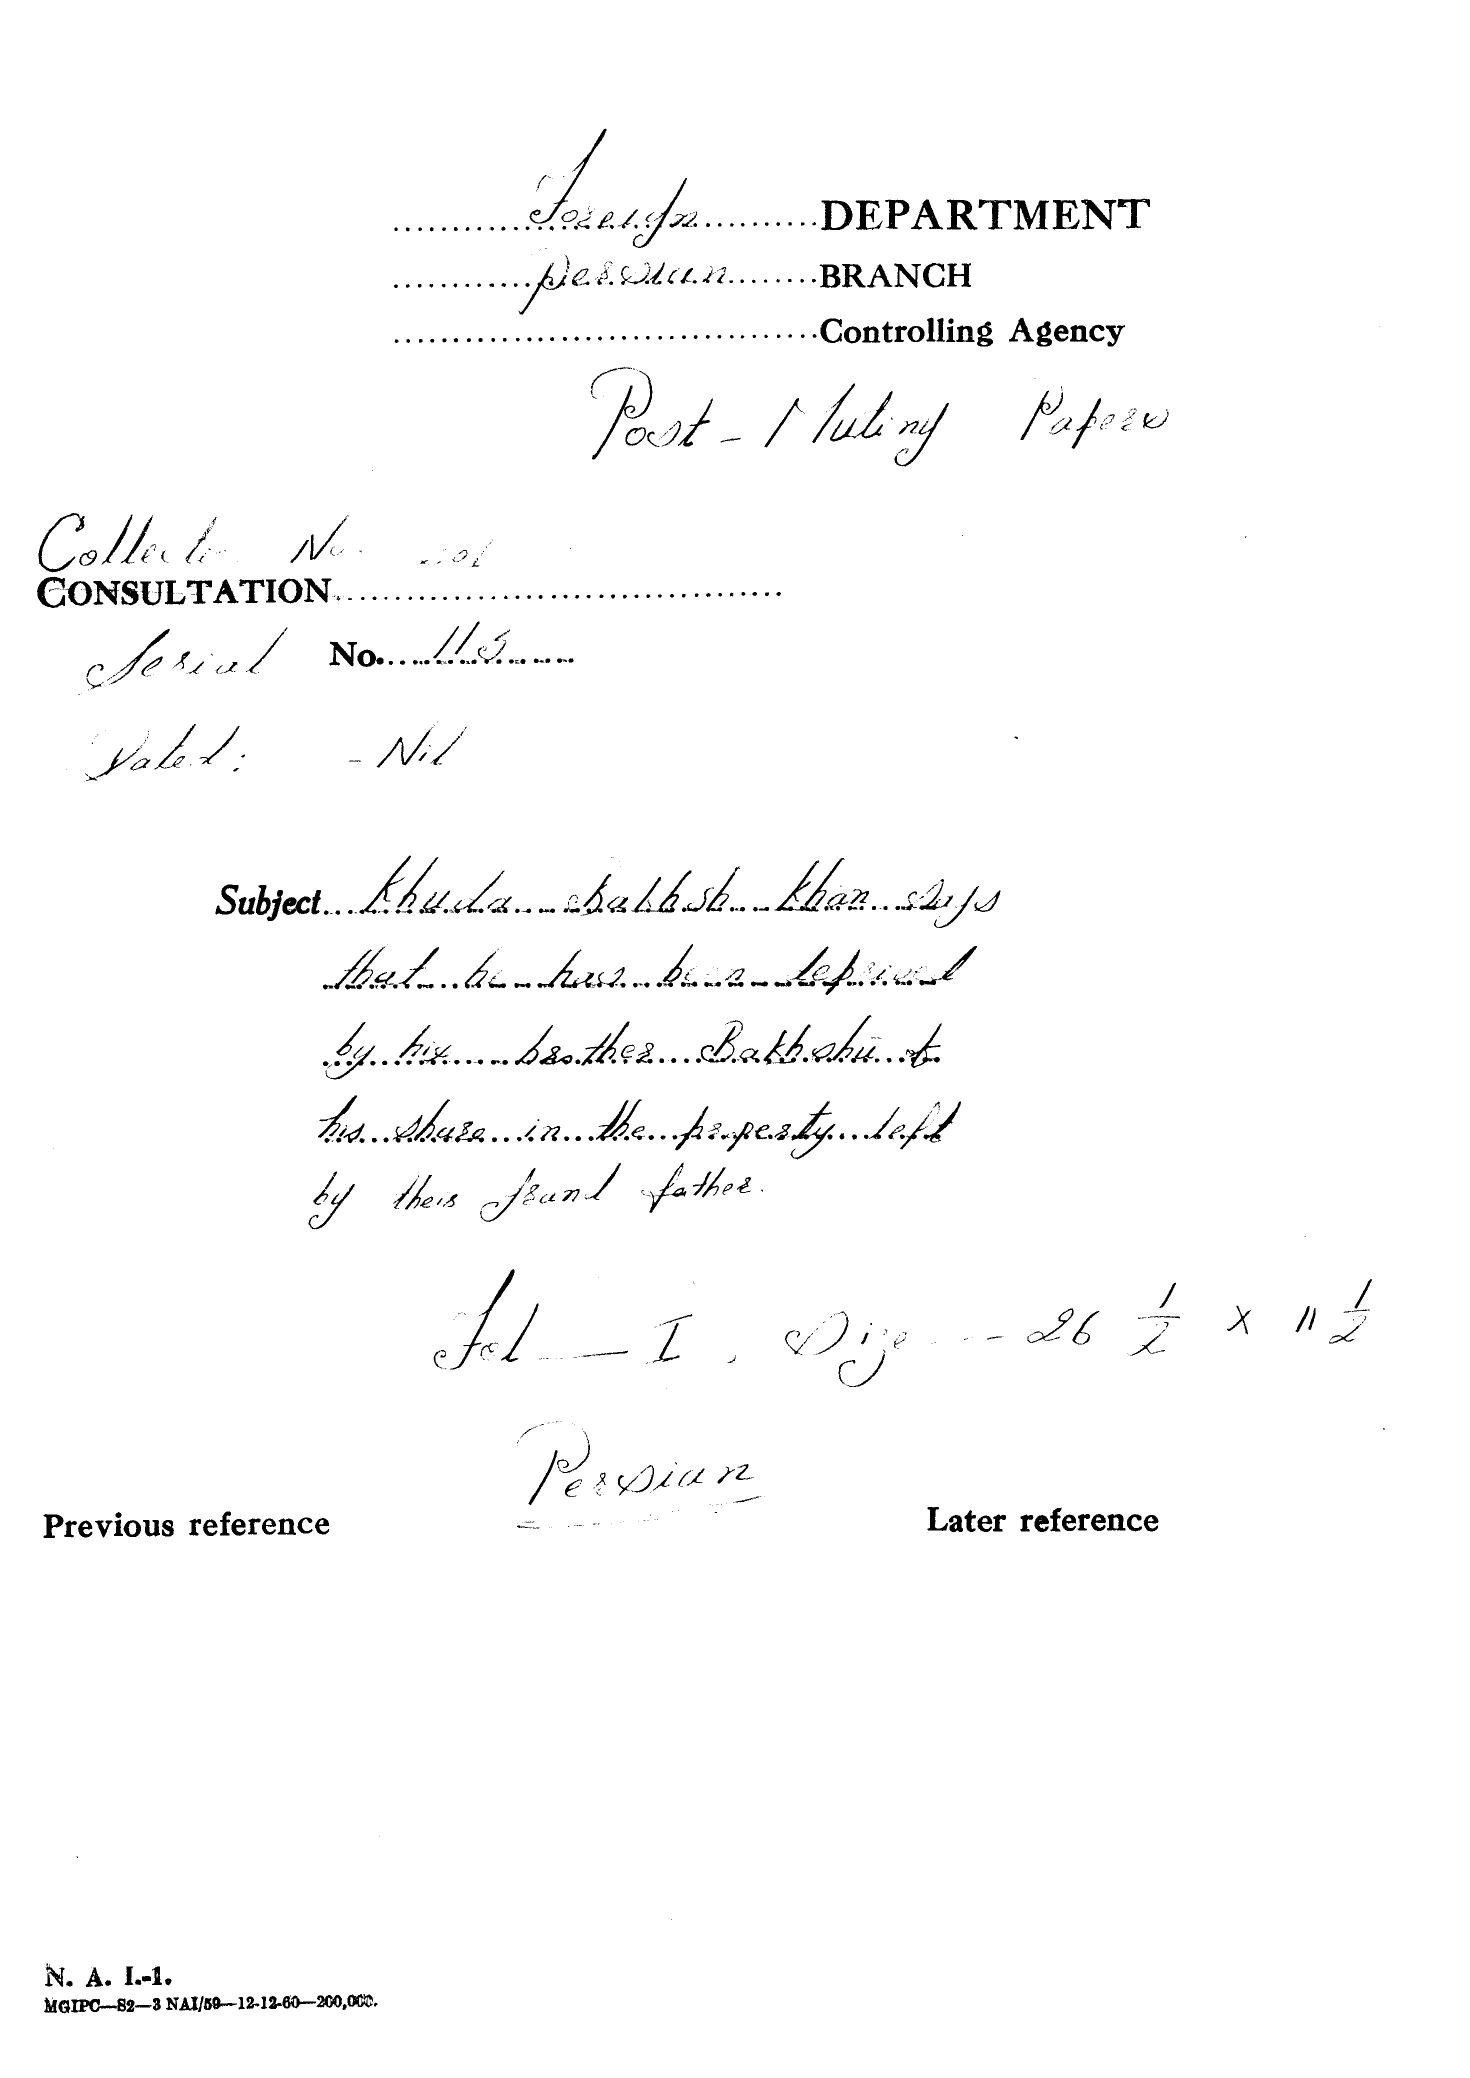 Foreign DEPARTMENT
persian BRANCH
Controlling Agency
Post-Mutiny Papers
Collection No.
CONSULTATION
Serial No. 115
Dated: - Nil
Subject Khuda Bakhsh Khan says
that he has been deprived
by his brother Bakhshū of
his share in the property left
by their grand father.
Fol — I. Size -- 26 1/2 x 11 1/2
Persian
Previous reference Later reference
N. A. I.-1.
MGIPC—S2—3 NAI/59—12-12-60—200,000.